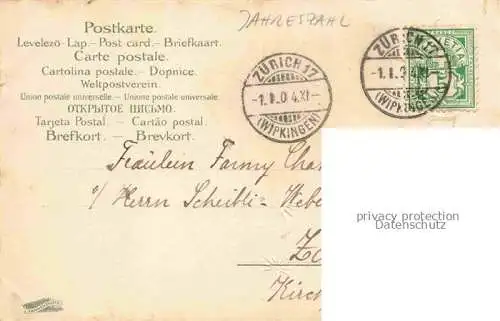 JAHRESZAHL
Postkarte.
Levelező-Lap. – Post card. – Briefkaart.
Carte postale.
Cartolina postale. – Dopnice.
Weltpostverein.
Union postale universelle. – Unione postale universale.
ОТКРЫТОЕ ПИСЬМО.
Tarjeta Postal. – Cartão postal.
Brefkort. – Brevkort.
ZÜRICH 17
-1.I.04.XI-
(WIPKINGEN)
ZÜRICH 17
-1.I.04.XI-
(WIPKINGEN)
HELVETIA
Fräulein Fanny
c/o Herrn Scheibli-Webe
privacy protection
Datenschutz